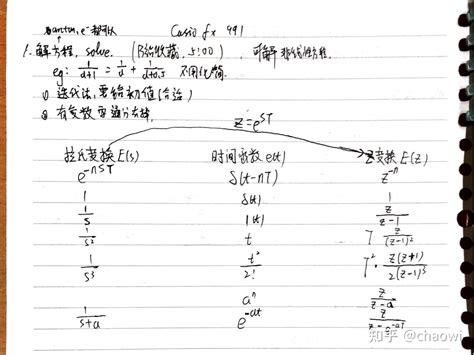 Casio fx 991
1.解方程, solve. (B站收藏, 5:00), 可解非线性方程.
eg: 1/(d+1) = 1/d + 1/(d+0.5) 不用化简.
① 迭代法, 要给初值(合适)
② 有复数要通分去掉.
z=e^{ST}
拉氏变换 E(s) 时间函数 e(t) Z变换 E(z)
e^{-nST} δ(t-nT) z^{-n}
1 δ(t) 1
1/S 1(t) z/(z-1)
1/S² t T z/(z-1)²
1/S³ t²/2! T²·z(z+1)/2(z-1)³
aⁿ z/(z-a)
1/(S+a) e^{-at} z/(z-e^{-aT})
知乎 @chaowi